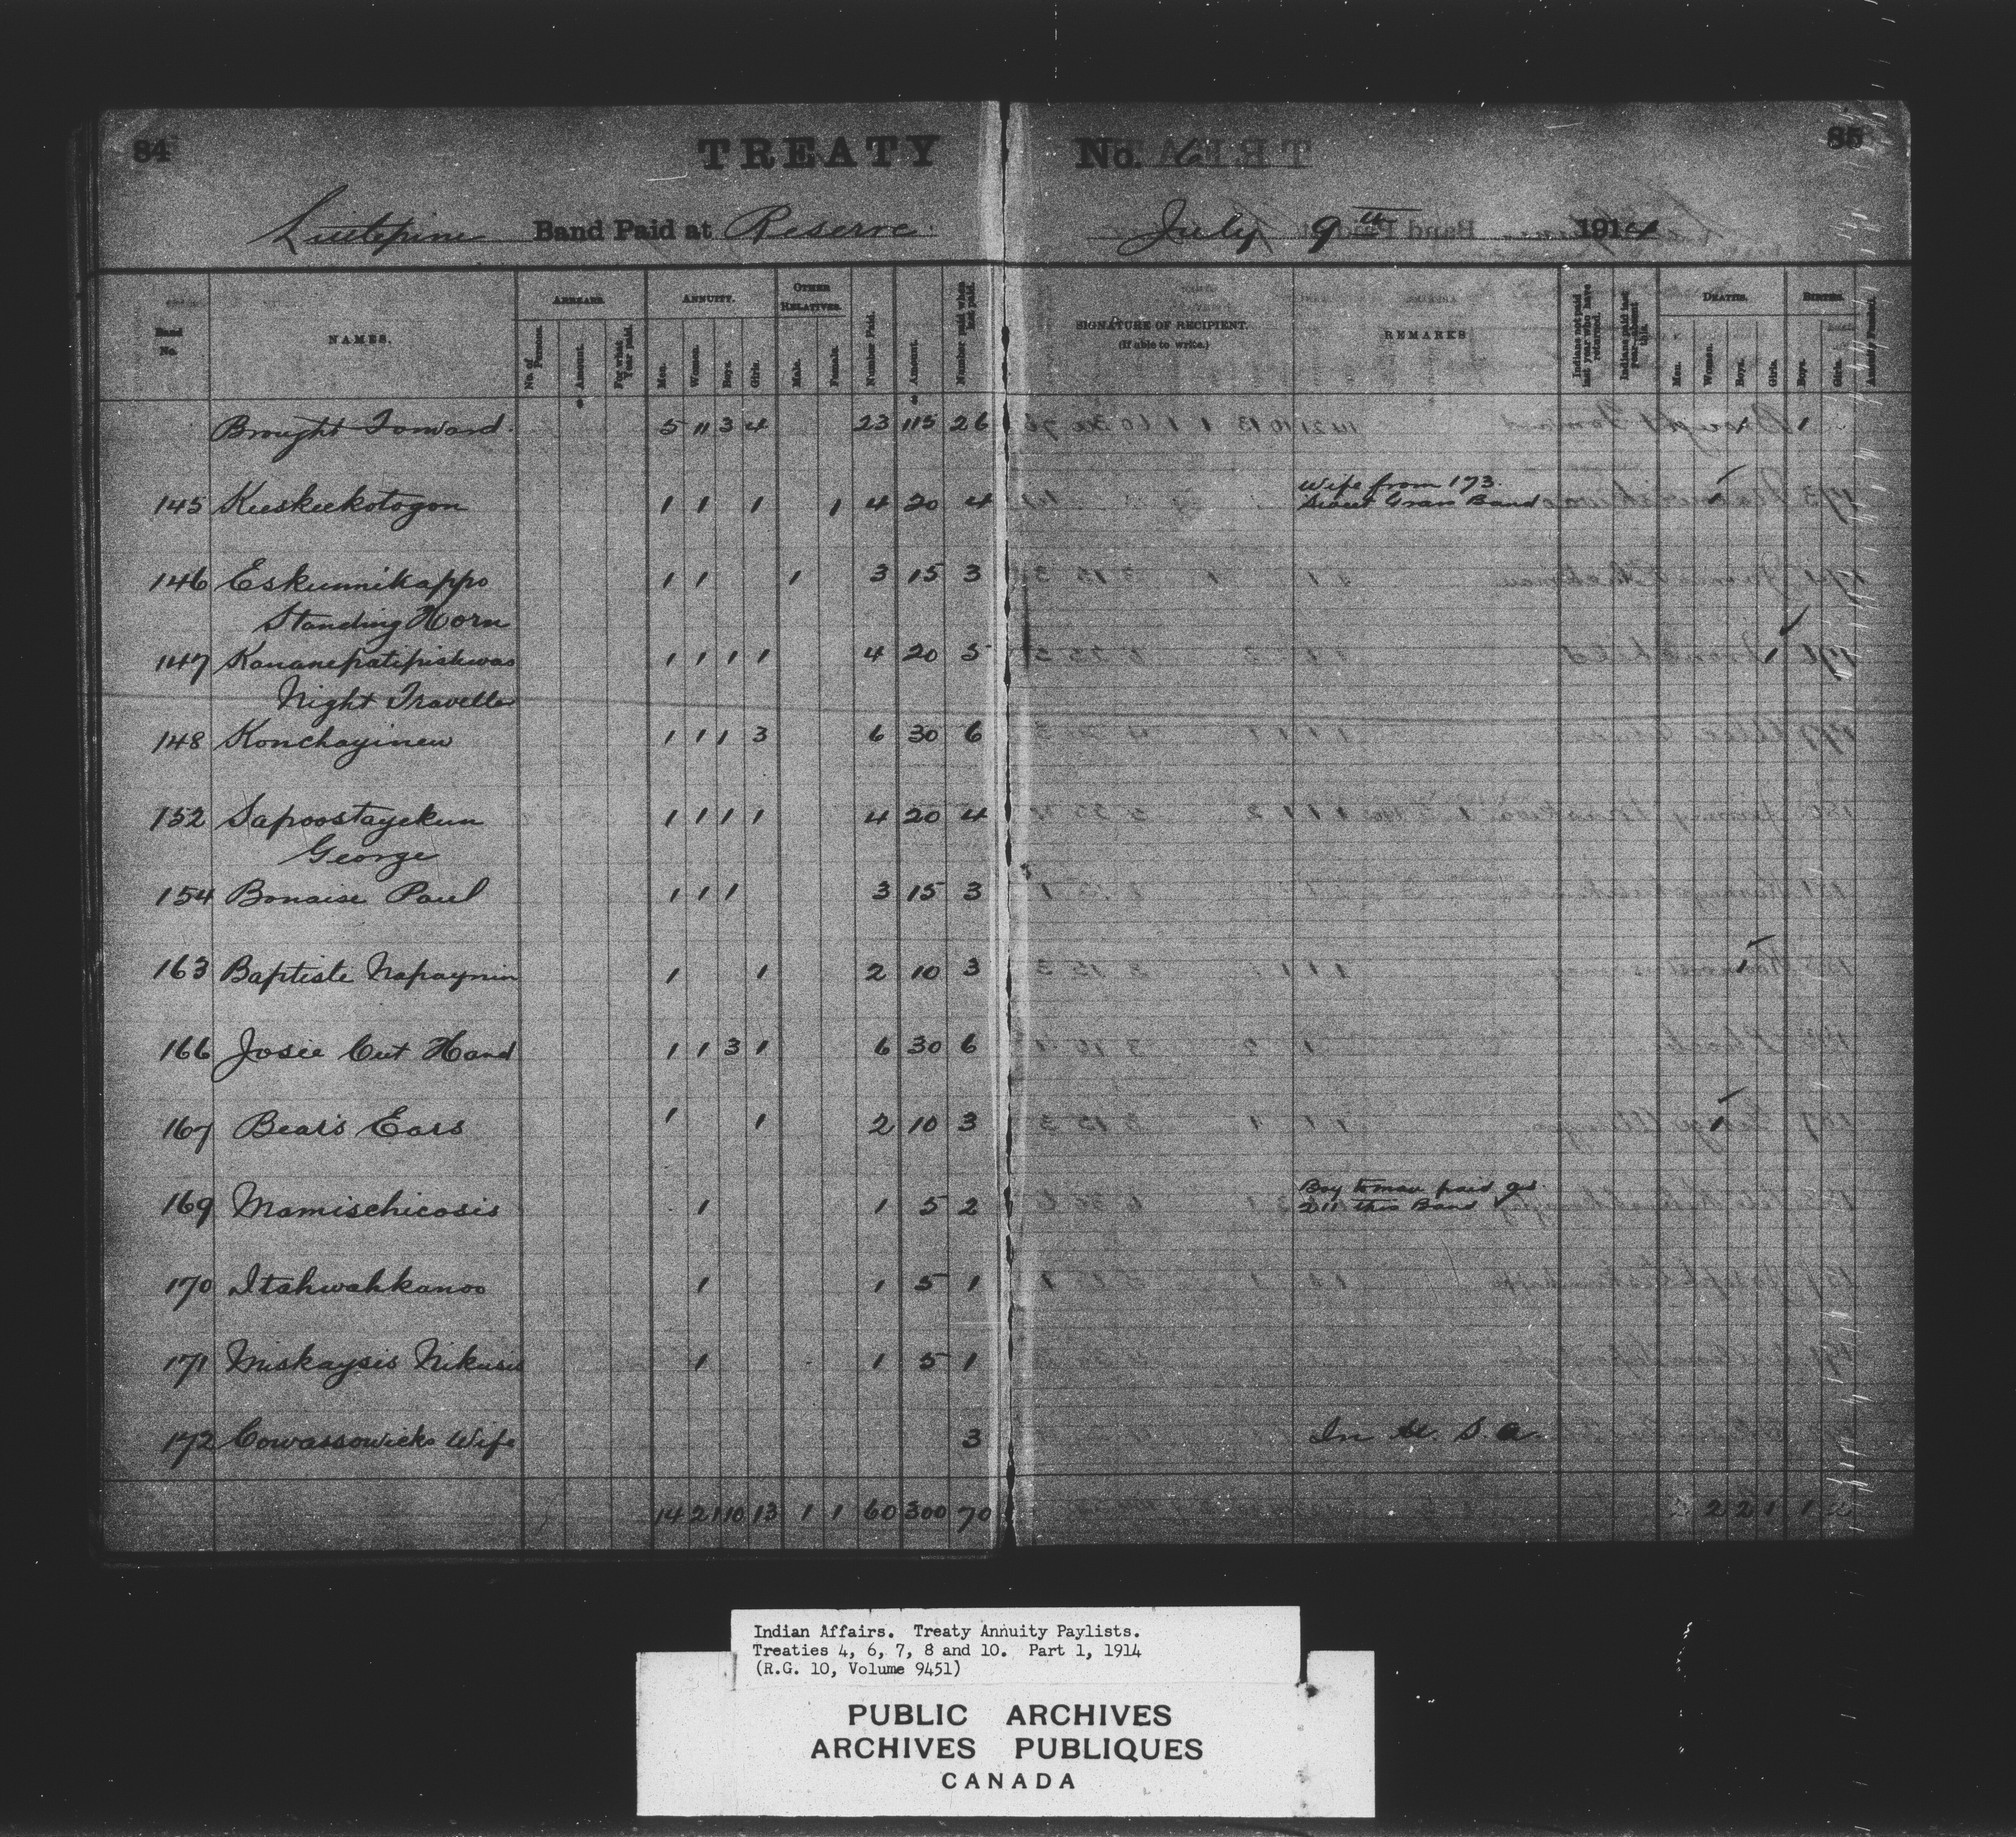 84
TREATY No. 6
85
Littlepine Band Paid at Reserve July 9th 1914
Band No.
NAMES.
ARREARS.
No. of Persons.
Amount.
For what Year paid.
ANNUITY.
Men.
Women.
Boys.
Girls.
OTHER RELATIVES.
Male.
Female.
Number Paid.
Amount.
Number paid when last paid.
SIGNATURE OF RECIPIENT.
(If able to write.)
REMARKS
Indians not paid last year who have returned.
Indians paid last year absent this.
DEATHS.
Men.
Women.
Boys.
Girls.
BIRTHS.
Boys.
Girls.
Brought Forward 5 11 3 4 23 115 26 1 1
Wife from 173
145 Keeskeekotogon 1 1 1 1 4 20 4 Sweet Grass Band 1
146 Eskunnikappo 1 1 1 3 15 3
Standing Horn
147 Kananepatipiskwao 1 1 1 1 4 20 5 1
Night Traveller
148 Konchayinew 1 1 1 3 6 30 6
152 Sapoostayekun 1 1 1 1 4 20 4
George
154 Bonaise Paul 1 1 1 3 15 3
163 Baptiste Napaynin 1 1 2 10 3 1
166 Josie Cut Hand 1 1 3 1 6 30 6
167 Bears Ears 1 1 2 10 3 1
Boy to man paid as
169 Mamischicosis 1 1 5 2 211 this Band
170 Itahwahkanoo 1 1 5 1
171 Miskaysis Nikusis 1 1 5 1
172 Cowassowicks Wife 3 In U. S. A.
14 21 10 13 1 1 60 300 70 2 2 1 1
Indian Affairs. Treaty Annuity Paylists.
Treaties 4, 6, 7, 8 and 10. Part 1, 1914
(R.G. 10, Volume 9451)
PUBLIC ARCHIVES
ARCHIVES PUBLIQUES
CANADA